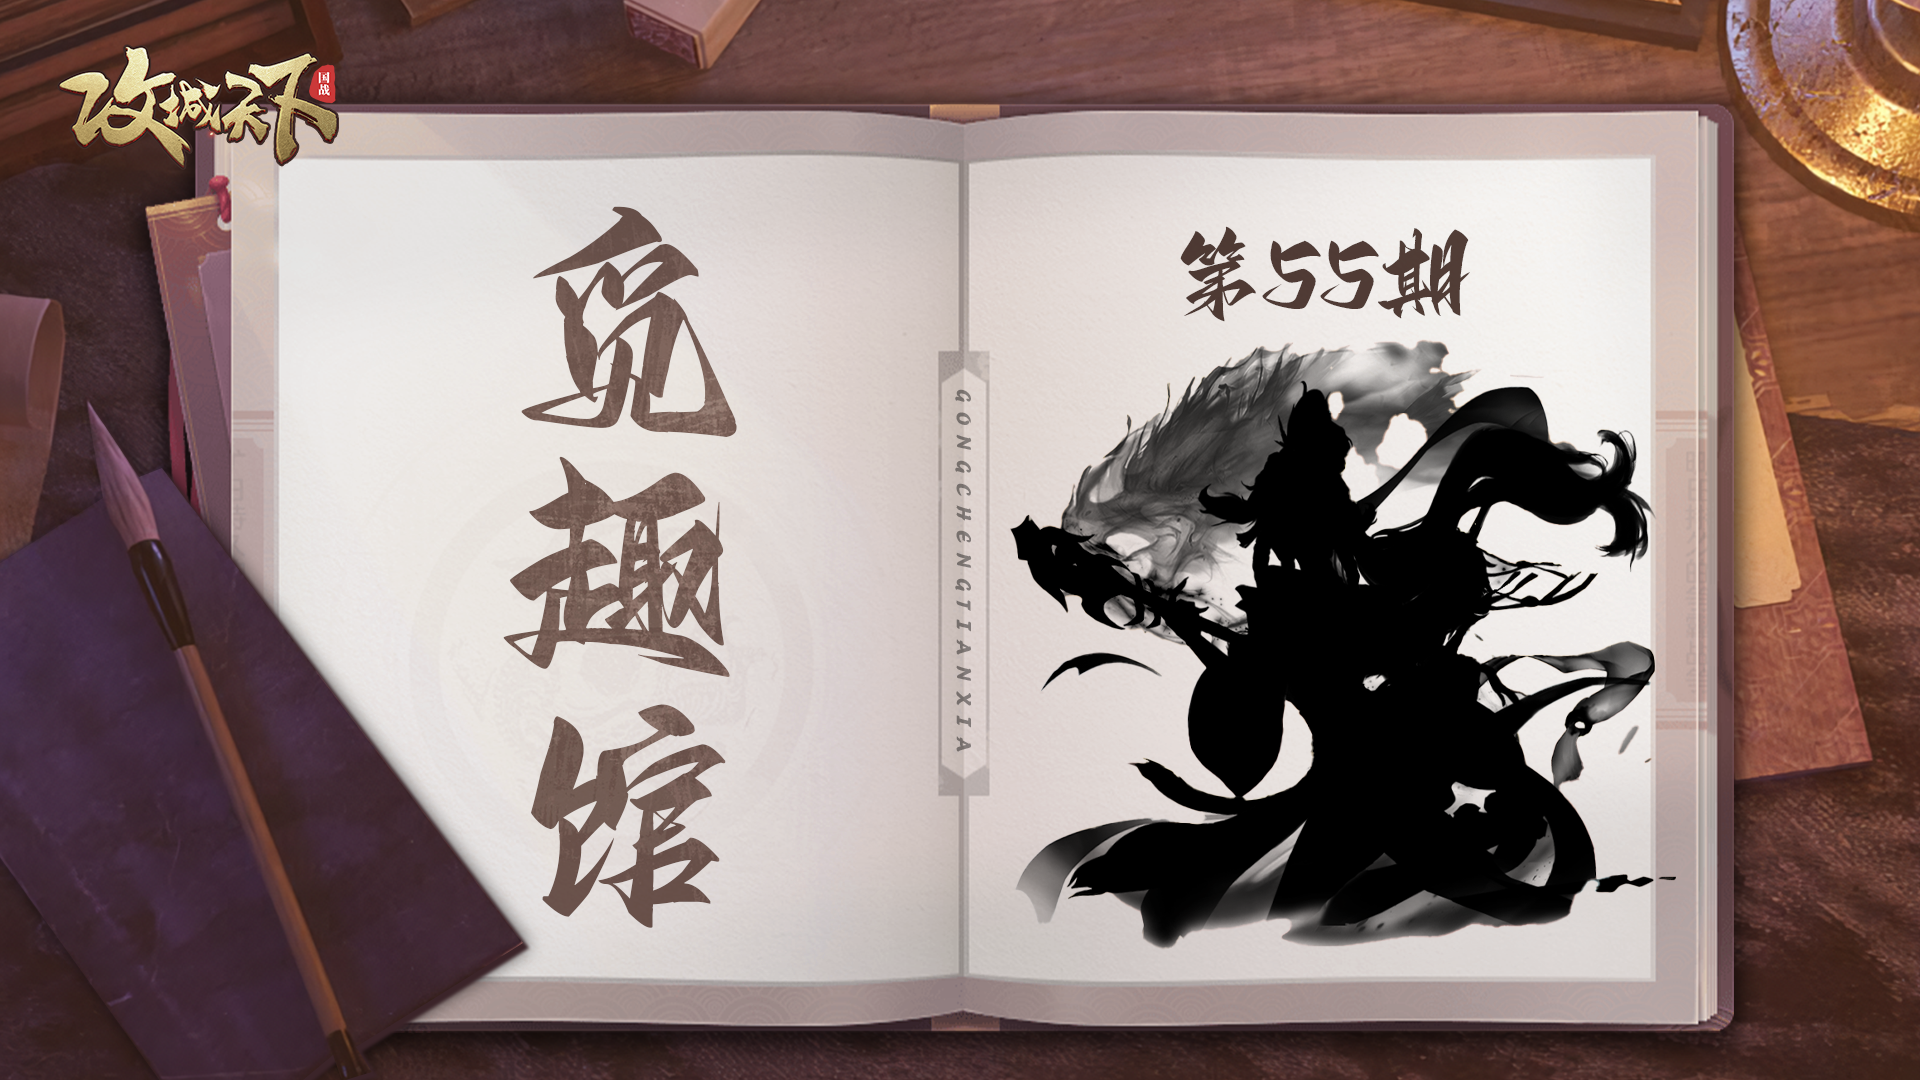 攻城天下
国战
觅趣馆
GONGCHENGTIANXIA
第55期